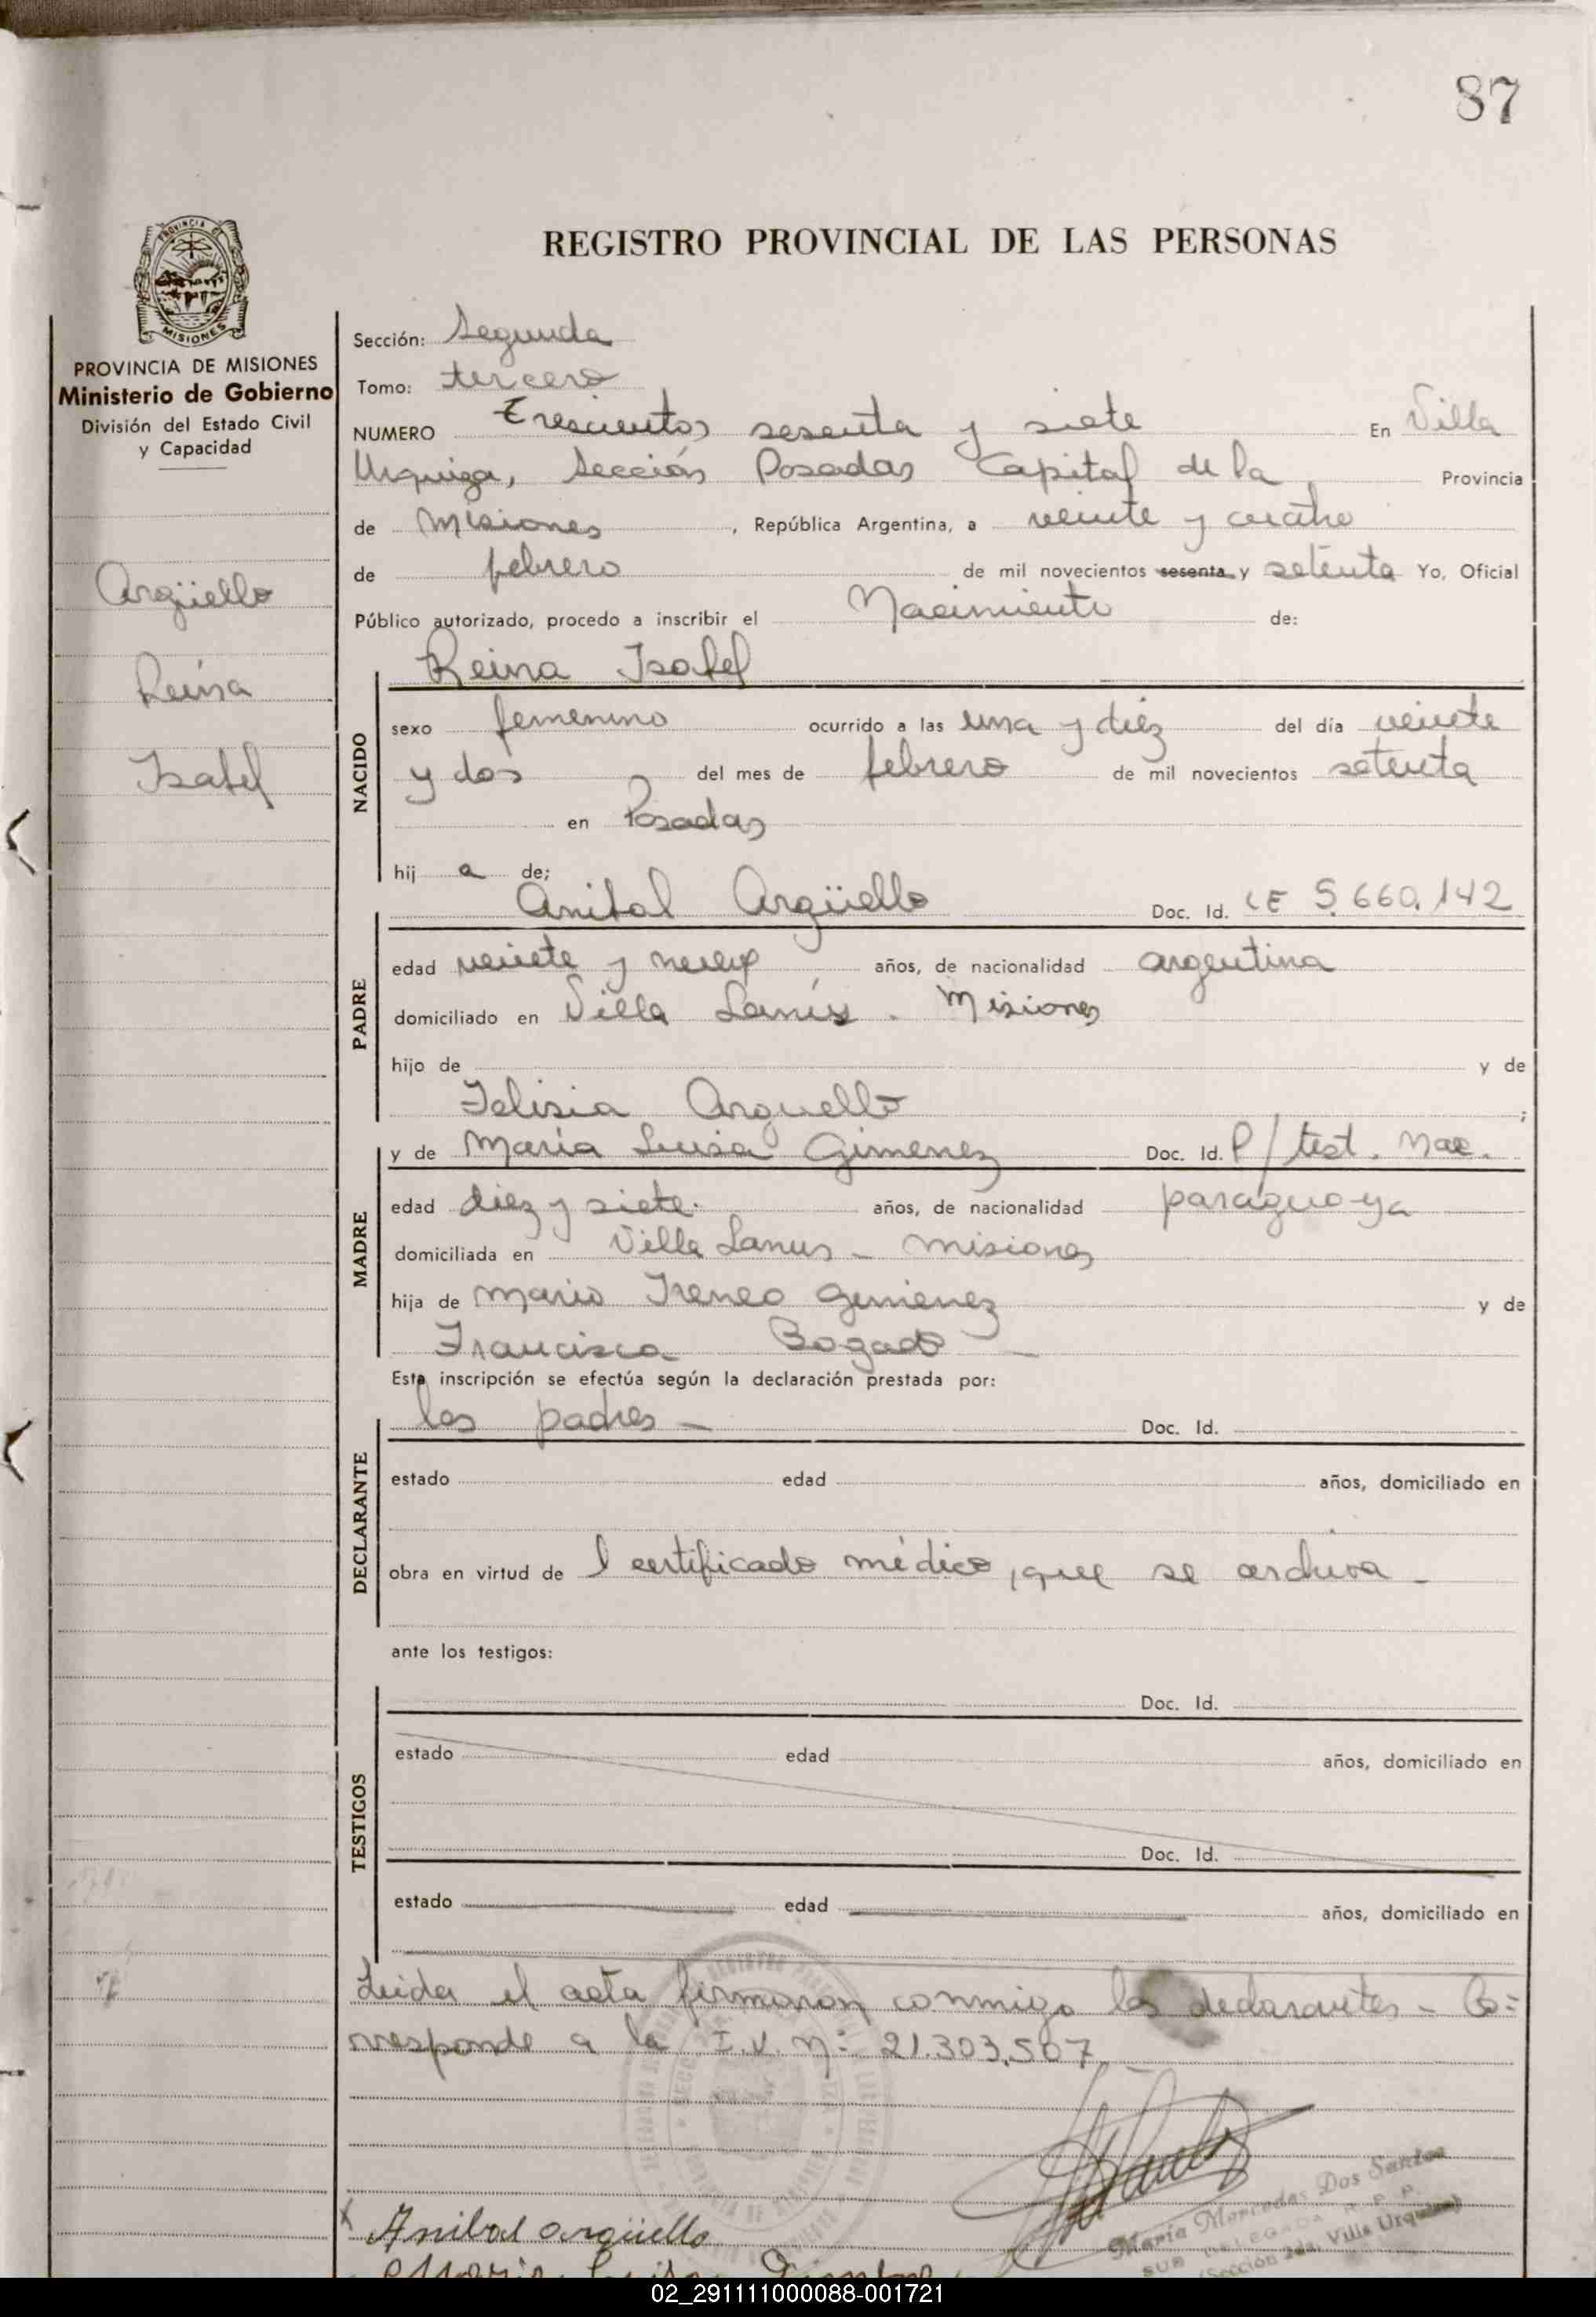 87
REGISTRO PROVINCIAL DE LAS PERSONAS
PROVINCIA DE
MISIONES
PROVINCIA DE MISIONES
Ministerio de Gobierno
División del Estado Civil
y Capacidad
Argüello
Reina
Isabel
Sección: Segunda
Tomo: tercero
NUMERO Trescientos sesenta y siete En Villa
Urquiza, Sección Posadas Capital de la Provincia
de Misiones, República Argentina, a veinte y cuatro
de febrero de mil novecientos sesenta y setenta Yo, Oficial
Público autorizado, procedo a inscribir el Nacimiento de:
Reina Isabel
NACIDO
sexo femenino ocurrido a las una y diez del día veinte
y dos del mes de febrero de mil novecientos setenta
en Posadas
hij a de;
Anibal Argüello Doc. Id. LE 5.660.142
PADRE
edad veinte y nueve años, de nacionalidad argentina
domiciliado en Villa Lanús. Misiones
hijo de y de
Felisia Arguello ;
y de María Luisa Gimenez Doc. Id. P/test. Nac.
MADRE
edad diez y siete. años, de nacionalidad paraguaya
domiciliada en Villa Lanus - Misiones
hija de Mario Ireneo Gimenez y de
Francisca Bogado —
Esta inscripción se efectúa según la declaración prestada por:
los padres — Doc. Id.
DECLARANTE
estado edad años, domiciliado en
obra en virtud de l certificado médico, que se archiva -
ante los testigos:
Doc. Id.
TESTIGOS
estado edad años, domiciliado en
Doc. Id.
estado edad años, domiciliado en
Leida el acta firmaron conmigo los declarantes - Co=
rresponde a la I.V. Nº 21.303.507
x Anibal argüello
María Luisa Gimenez
María Mercedes Dos Santos
SUB DELEGADA R. P. P.
(Sección 2da. Villa Urquiza)
02_291111000088-001721